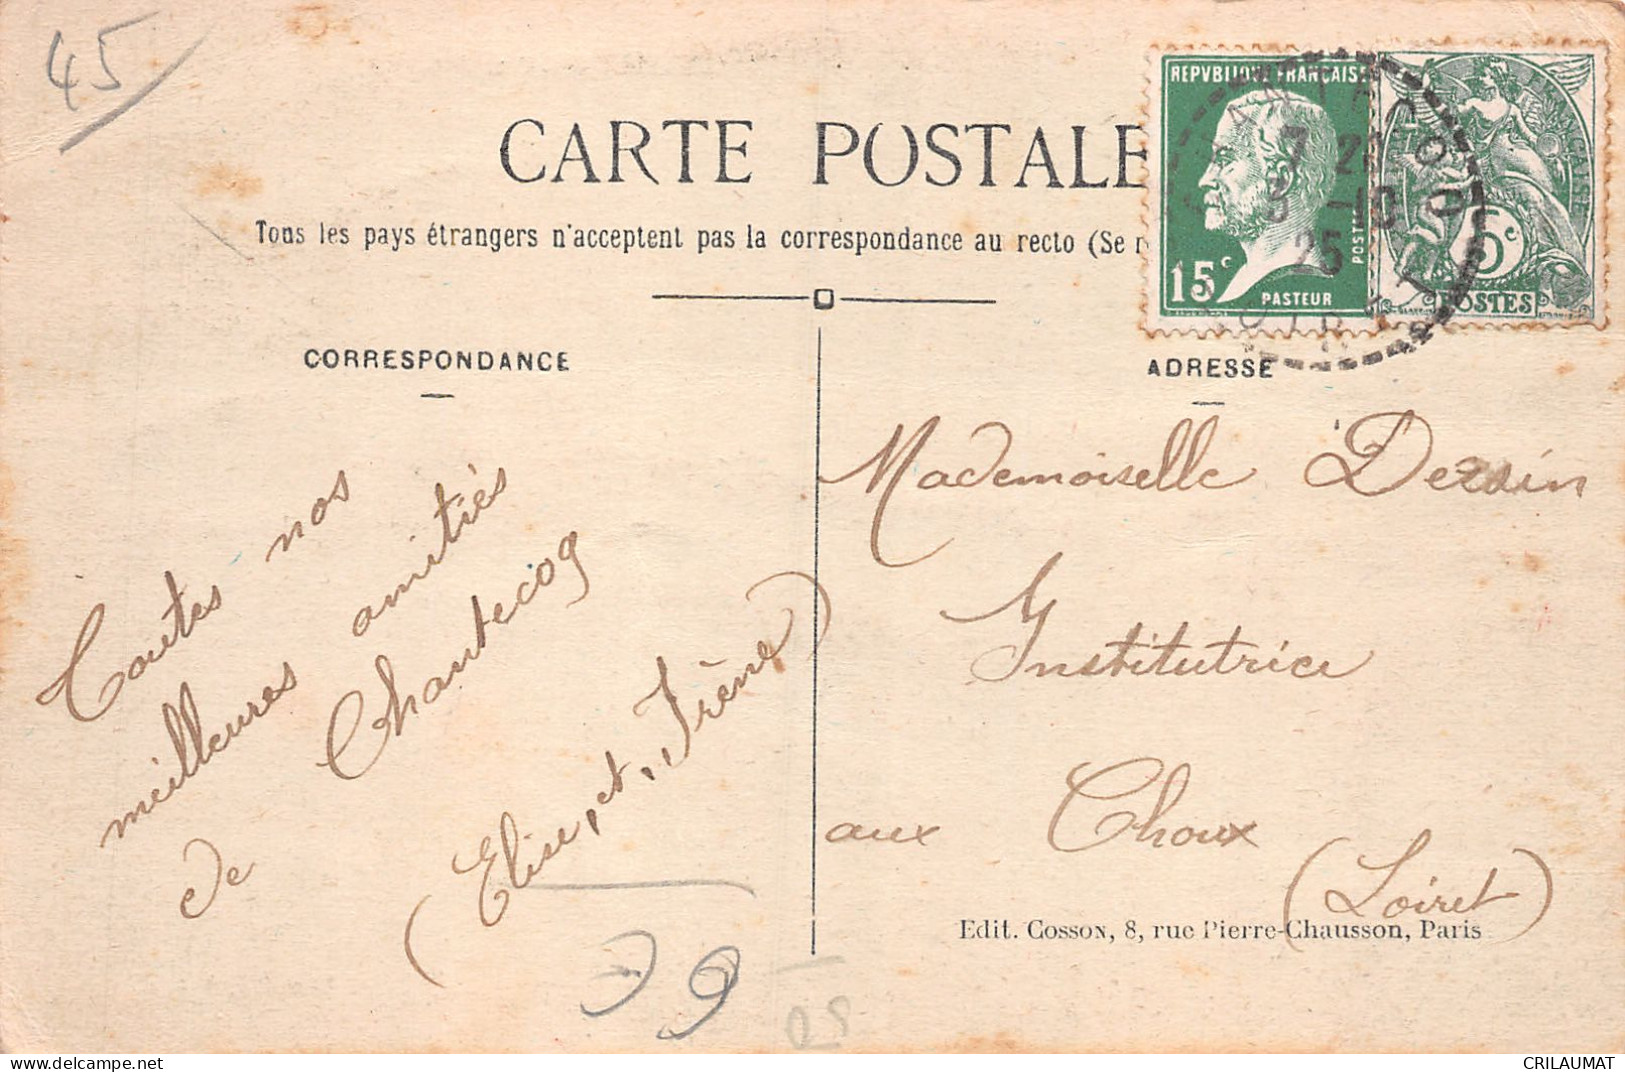 45
CARTE POSTALE
Tous les pays étrangers n'acceptent pas la correspondance au recto (Se
REPVBLIQUE FRANÇAISE
15c
POSTES
PASTEUR
5c
POSTES
7 2
3 -10
25
LOIRET
CORRESPONDANCE
Toutes nos
meilleures amitiés
de Chantecoq
(Elise, et, Irène)
ADRESSE
Mademoiselle Dezsin
Institutrice
aux Choux
(Loiret)
Edit. Cosson, 8, rue Pierre-Chausson, Paris
https://www.delcampe.net
CRILAUMAT